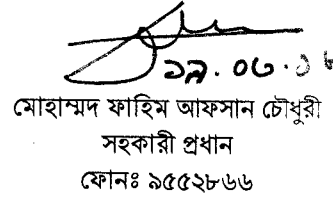 ১৯.০৩.১৮
মোহাম্মদ ফাহিম আফসান চৌধুরী
সহকারী প্রধান
ফোনঃ ৯৫৫২৮৬৬